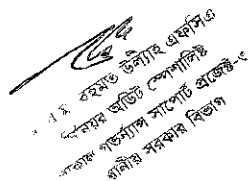 রহমত উল্যাহ এফসিএ
সিনিয়র অডিট স্পেশালিষ্ট
লোকাল গভর্ন্যান্স সাপোর্ট প্রজেক্ট-৩
স্থানীয় সরকার বিভাগ